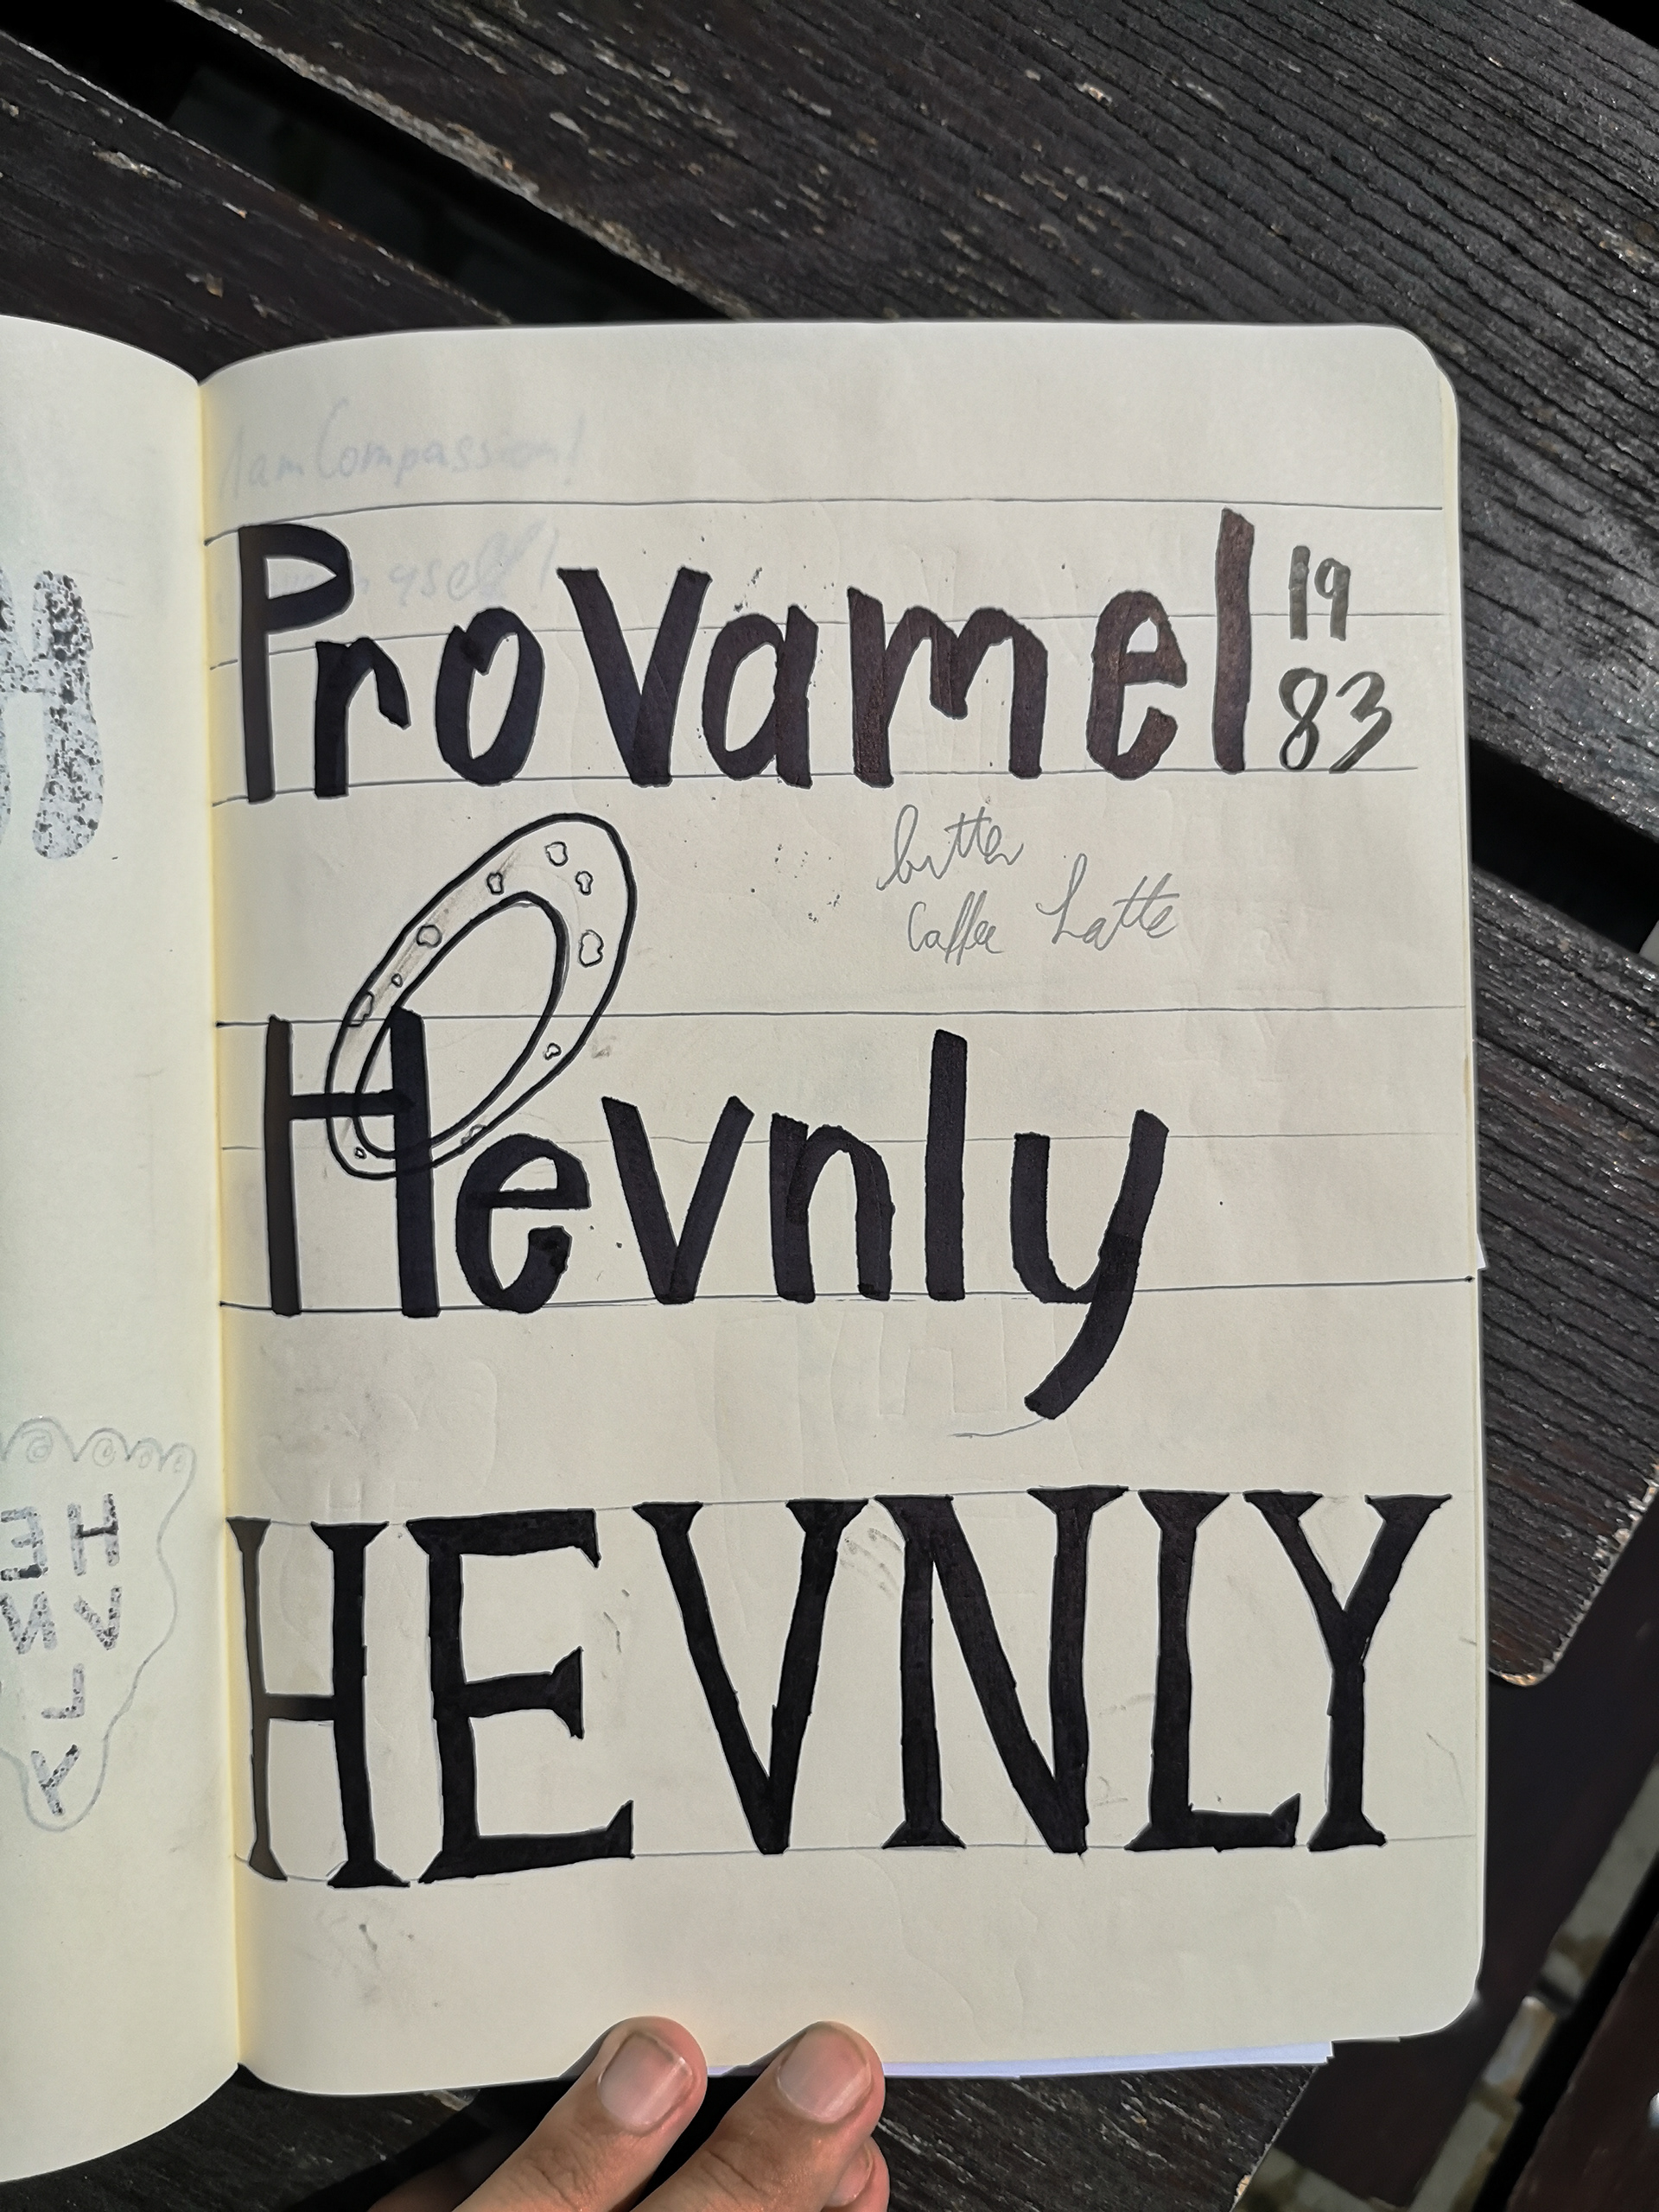 I am Compassion!
myself!
Provamel 19
83
butter
Caffee Latte
Hevnly
HEVNLY
HE
VN
L
Y